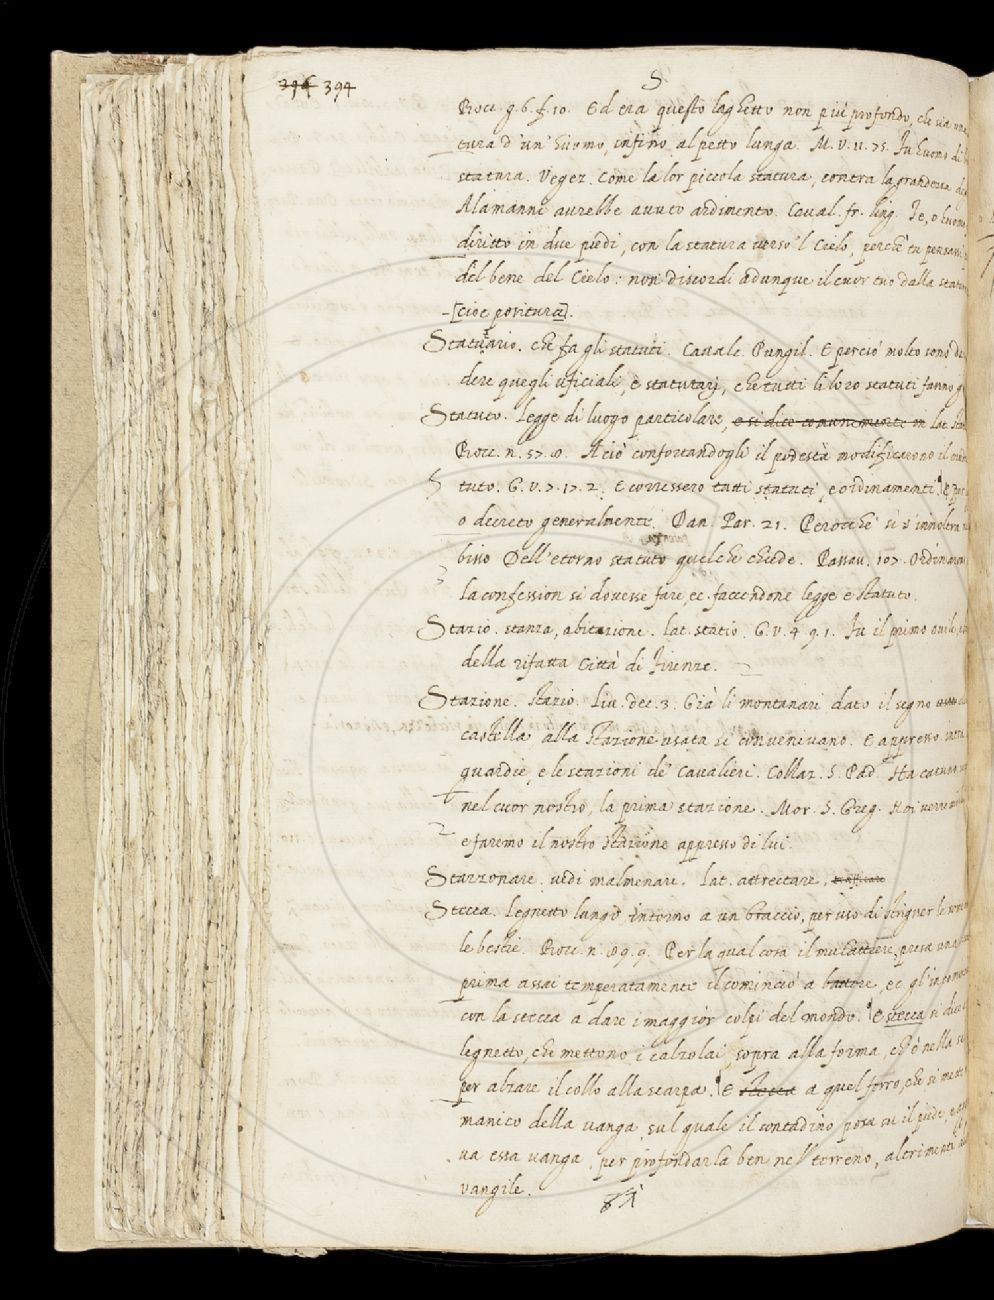 394 394
S
Bocc. g. 6. f. 10. Ed era questo laghetto non più profondo, che sia una
tura d'un huomo, infino al petto lunga. M. V. 11. 75. Fu huomo di
statura. Vegez. Come la lor piccola statura, contra la grandezza
Alamanni avrebbe avuto ardimento. Caval. fr. ling. Te, o huomo
diritto in due piedi, con la statura verso 'l Cielo, perchè tu pensassi
del bene del Cielo: non discordi adunque il cuor tuo dalla statura
[cioè positura].
Statuario. che fa gli statuti. Cavalc. Pungil. E perciò molto sono da
dere quegli uficiali, e statutarj, che tutti li loro statuti fanno
Statuto. Legge di luogo particolare, e si dice comunemente in lat.
Bocc. n. 57. 8. A ciò confortandogli il podestà modificarono il
tuto. G. V. 7. 17. 2. E corressero tutti statuti, e ordinamenti. E per
o decreto generalmente. Dan. Par. 21. Perocchè sì s'innoltra
bisso Dell'eterno statuto quelche chiede. Passav. 107. Ordinarono
la confession si dovesse fare, ec. faccendone legge e statuto.
Stazio. stanza, abitazione. lat. statio. G. V. 4. 9. 1. Fu il primo ovile,
della rifatta Città di Firenze.
Stazione. Stazio. Liv. dec. 3. Già li montanari dato il segno
castella alla stazione usata si convenivano. E appresso intra
guardie, e le stazioni de' Cavalieri. Collaz. S. Pad. Ha catuno
nel cuor nostro, la prima stazione. Mor. S. Greg. Noi verremo
e faremo il nostro stazzone appresso di lui.
Stazzonare. vedi malmenare. Lat. attrectare,
Stecca. Legnetto lungo intorno a un braccio, per uso di strigner le some
le bestie. Bocc. n. 89. 9. Per la qual cosa il mulattiere, presa una
prima assai temperatamente il cominciò a battere, ec. gl'incominciò
con la stecca a dare i maggior colpi del mondo. E stecca si dice
legnetto, che mettono i calzolai, sopra alla forma, ch'è nella
per alzare il collo alla scarpa. E stecca a quel ferro, che si mette
manico della vanga, sul quale il contadino posa su il piede,
va essa vanga, per profondarla ben nel terreno, altrimenti
vangile.